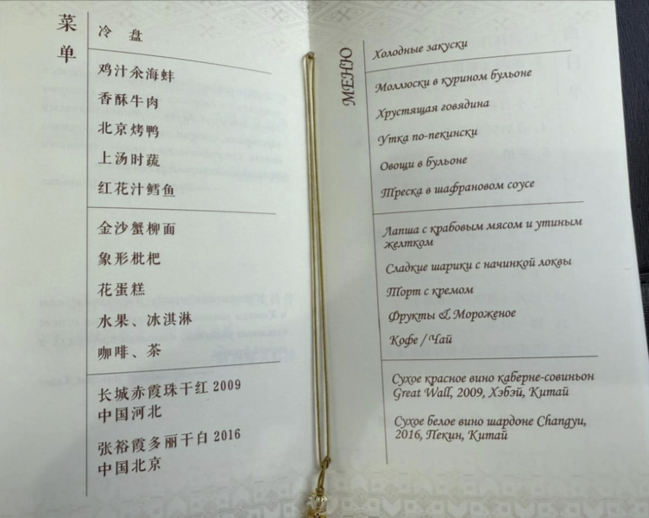 菜单
冷 盘
鸡汁氽海蚌
香酥牛肉
北京烤鸭
上汤时蔬
红花汁鳕鱼
金沙蟹柳面
象形枇杷
花蛋糕
水果、冰淇淋
咖啡、茶
长城赤霞珠干红 2009
中国河北
张裕霞多丽干白 2016
中国北京
МЕНЮ
Холодные закуски
Моллюски в курином бульоне
Хрустящая говядина
Утка по-пекински
Овощи в бульоне
Треска в шафрановом соусе
Лапша с крабовым мясом и утиным
желтком
Сладкие шарики с начинкой локвы
Торт с кремом
Фрукты & Мороженое
Кофе / Чай
Сухое красное вино каберне-совиньон
Great Wall, 2009, Хэбэй, Китай
Сухое белое вино шардоне Changyu,
2016, Пекин, Китай